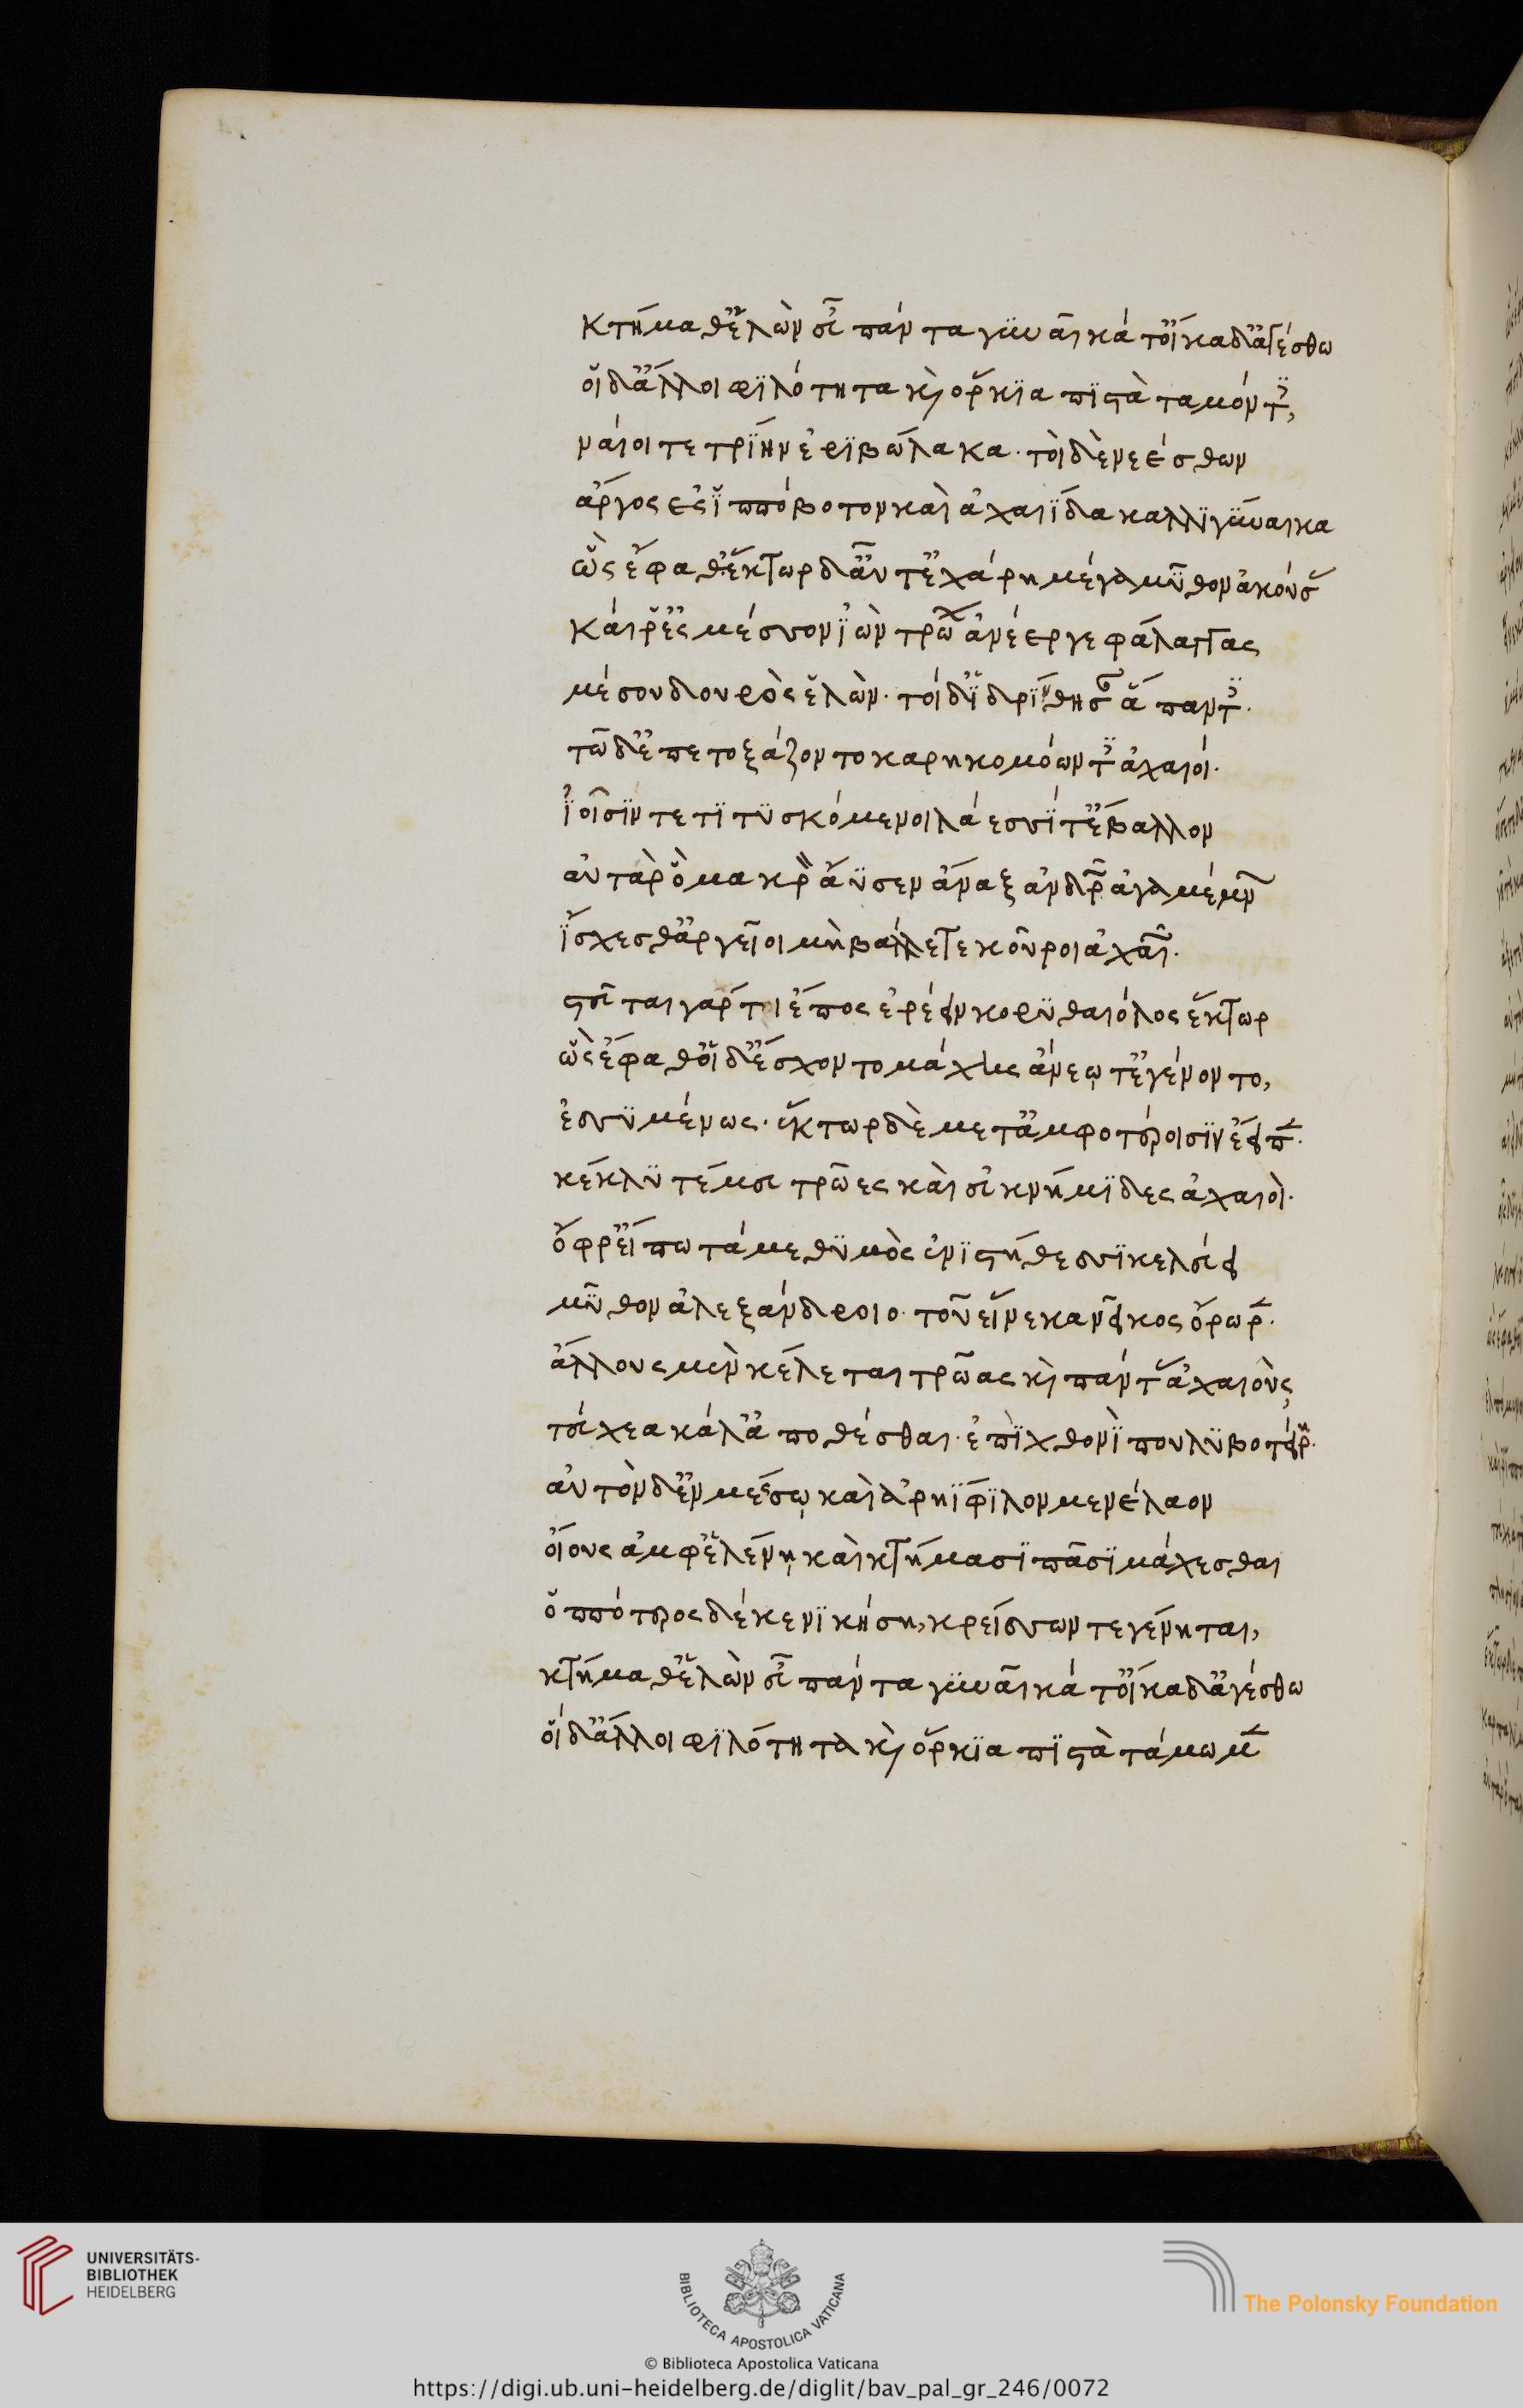 κτήμαθ' ἑλὼν εὖ πάντα γϋναῖκά τ' οἴκαδ' ἀγέσθω
οἵ δ' ἄλλοι φϊλότητα κὶ ὅρκϊα πϊστὰ ταμόντ,
νάιοι τε τρίην ἐρϊβώλακα· τοὶ δὲ νεέσθων
ἄργος ἐς ἵππόβοτον καὶ ἀχαιΐδα καλλϊγύναικα
ὣς ἔφαθ' ἕκτωρ δ' αὖτ' ἐχάρη μέγα μῦθον ἀκούσ
καί ῥ' ἐς μέσσον ἰὼν τρώ ἀνέεργε φάλαγγας
μέσου δουρὸς ἑλὼν· τοί δ' ἱδρΐνθησ ἅπαντ·
τῶ δ' ἐπετοξάζοντο καρηκομόωντ ἀχαιοί·
ἰοῖσΐν τε τϊτϋσκόμενοι λάεσσΐ τ' ἔβαλλον
αὐτὰρ ὃ μακρ ἄϋσεν ἄναξ ἀνδρ ἀγαμέμν
ἴσχεσθ' ἀργεῖοι μὴ βάλλετε κοῦροι ἀχαι·
στεῦται γάρ τι ἔπος ἐρέειν κορϋθαιόλος ἕκτωρ
ὣς ἔφαθ' οἵ δ' ἔσχοντο μάχης ἄνεῳ τ' ἐγένοντο,
ἐσσϋμένως· ἕκτωρ δὲ μετ' ἀμφοτέροισϊν ἔειπ·
κέκλϋτέ μευ τρῶες καὶ εὐκνήμϊδες ἀχαιοὶ·
ὄφρ' εἴπω τά με θϋμὸς ἐνϊ στήθεσσϊ κελεύει
μῦθον ἀλεξάνδροιο· τοῦ εἵνεκα νεῖκος ὄρωρ·
ἄλλους μὲν κέλεται τρῶας κὶ πάντ ἀχαιοὺς
τεύχεα κάλ' ἀποθέσθαι· ἐπὶ χθονὶ πουλϋβοτείρ·
αὐτὸν δ' ἐν μέσσῳ καὶ ἀρηΐφϊλον μενέλαον
οἴους ἀμφ' ἑλένῃ καὶ κτήμασϊ πᾶσϊ μάχεσθαι
ὅππότερος δέ κε νϊκήση, κρείσσων τε γένηται,
κτήμαθ' ἑλὼν εὖ πάντα γϋναῖκά τ' οἴκαδ' ἀγέσθω
οἵ δ' ἄλλοι φϊλότητα κὶ ὅρκϊα πϊστὰ τάμωμ
UNIVERSITÄTS-
BIBLIOTHEK
HEIDELBERG
BIBLIOTECA APOSTOLICA VATICANA
The Polonsky Foundation
© Biblioteca Apostolica Vaticana
https://digi.ub.uni-heidelberg.de/diglit/bav_pal_gr_246/0072